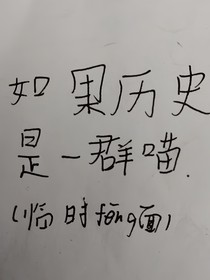 如果历史
是一群喵.
(临时fēng面)